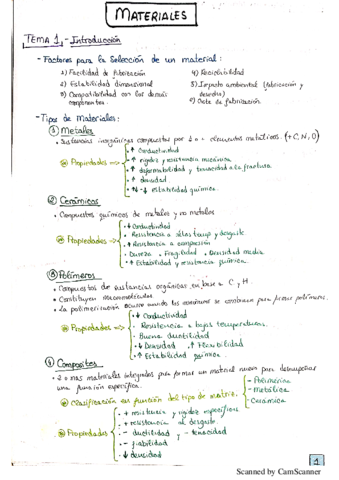 MATERIALES
TEMA 1 - Introducción
- Factores para la Selección de un material:
1) Facilidad de fabricación
2) Estabilidad dimensional
3) Compatibilidad con los demás componentes.
4) Reciclabilidad
5) Impacto ambiental (fabricación y desecho)
6) Coste de fabricación.
- Tipos de Materiales:
① Metales
• Sustancias inorgánicas compuestas por 1 o + elementos metálicos. (+ C, N, O)
Propiedades
• ↑ Conductividad
• ↑ rigidez y resistencia mecánica
• ↑ deformabilidad y tenacidad a la fractura
• ↑ densidad.
• ↑↓ estabilidad química.
② Cerámicos
• Compuestos químicos de metales y no metales
Propiedades
• ↓ Conductividad
• Resistencia a altas temp y desgaste
• ↑ Resistencia a compresión
• Dureza • Fragilidad • Densidad media
• ↑ Estabilidad y resistencia química.
③ Polímeros
• Compuestos de sustancias orgánicas en base a C, H.
• Constituyen macromoléculas
• La polimerización ocurre cuando los monómeros se combinan para formar polímeros.
Propiedades
• ↓ Conductividad
• Resistencia a bajas temperaturas.
• Buena ductilidad
• ↓ Densidad • ↑ Flexibilidad
• ↑ Estabilidad química.
④ Composites
• 2 o más materiales integrados para formar un material nuevo para desempeñar
una función específica.
Clasificación en función del tipo de matriz.
- Polimérica
- Metálica
- Cerámica
Propiedades
• + resistencia y rigidez específicas
• + resistencia al desgaste.
• - ductilidad • - tenacidad
• - fiabilidad
• ↓ densidad
1
Scanned by CamScanner